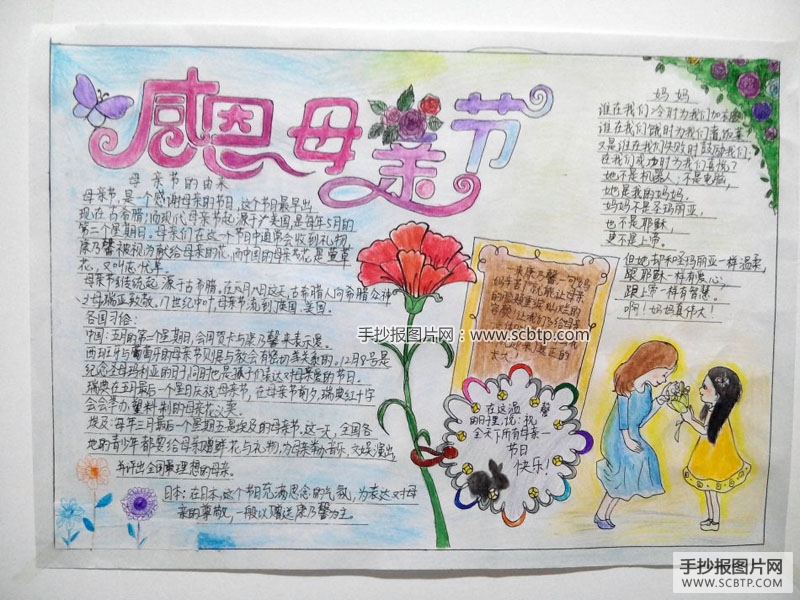 感恩母亲节
母亲节的由来
母亲节,是一个感谢母亲的节日,这个节日最早出
现在古希腊;而现代母亲节起源于美国,是每年5月的
第二个星期日。母亲们在这一个节日中通常会收到礼物,
康乃馨被视为献给母亲的花,而中国的母亲花是萱草
花,又叫忘忧草。
母亲节传统起源于古希腊,在1月8日这天,古希腊人向希腊众神
之母瑞亚致敬,17世纪中叶,母亲节流到英国,美国。
各国习俗:
中国:五月的第二个星期日,会用贺卡与康乃馨来表示爱。
西班牙与葡萄牙的母亲节则是与教会有密切关系的,12月8号是
纪念圣母玛利亚的时间,同时也是孩子们表达对母亲爱的节日。
瑞典在五月最后一个星日庆祝母亲节,在母亲节前夕,瑞典红十字
会会举办塑料制的母亲花义卖。
埃及:每年三月最后一个星期五是埃及的母亲节,这一天,全国各
地的青少年都要给母亲赠鲜花与礼物,为母亲举办音乐、文娱演出,
并评出全国最理想的母亲。
日本:在日本,这个节日充满思念的气氛,为表达对母
亲的尊敬,一般以赠送康乃馨为主。
妈妈
谁在我们冷时为我们加衣服,
谁在我们饿时为我们
又是谁在我们失败时鼓励我们,
在我们成功时为我们喜悦?
她不是机器人,不是电脑,
她是我的妈妈。
妈妈不是圣玛丽亚,
也不是耶稣,
更不是上帝。
但她却和圣玛丽亚一样温柔,
跟耶稣一样有爱心,
跟上帝一样有智慧。
啊!妈妈真伟大!
一束康乃馨,一句妈
在这温馨
的日子里,说:祝
全天下所有母亲
节日
快乐!
手抄报图片网:www.scbtp.com
手抄报图片网
WWW.SCBTP.COM